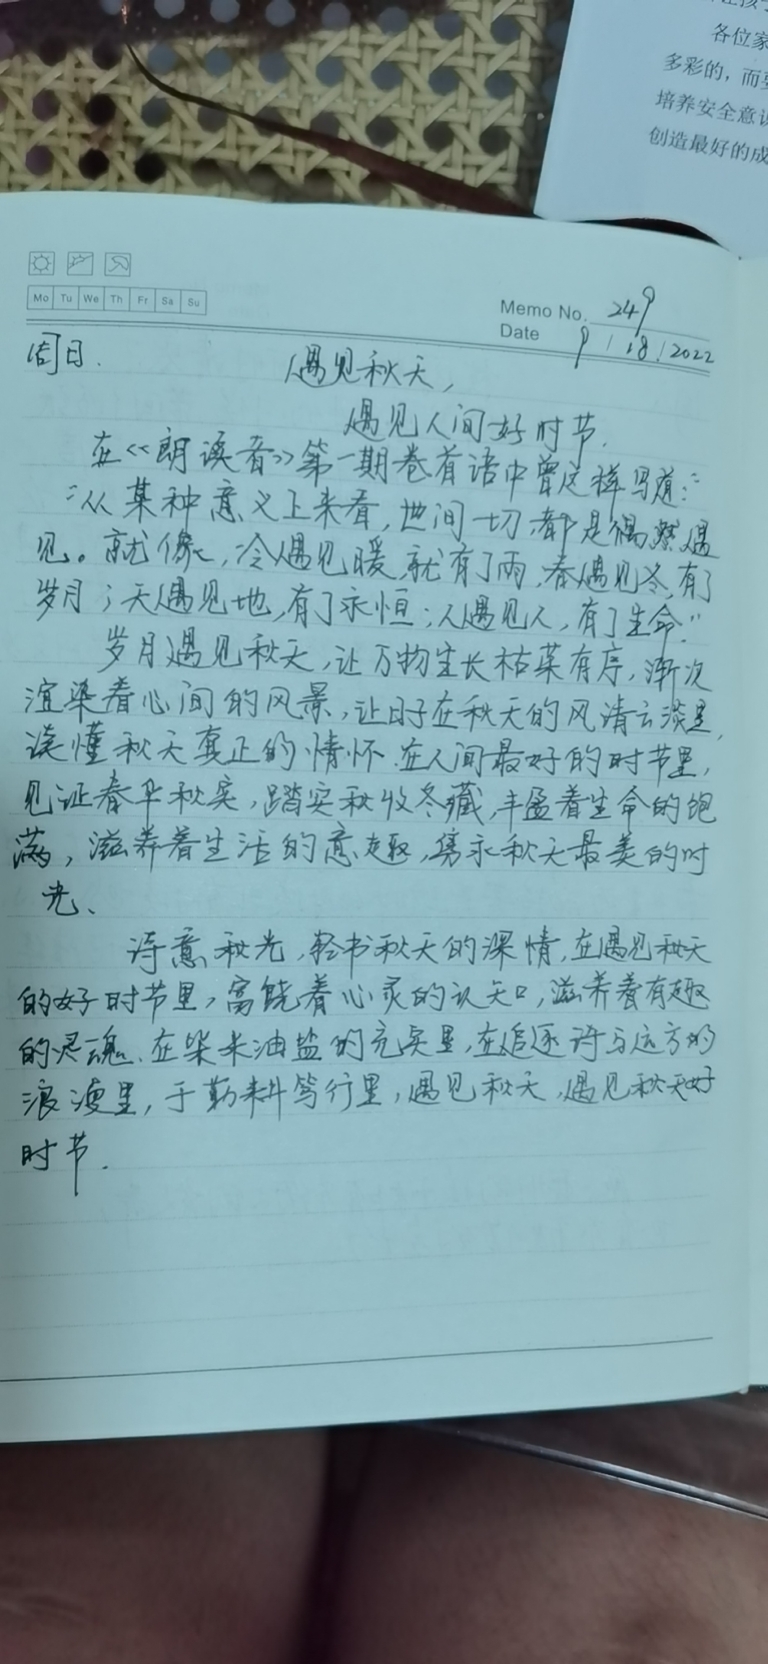 各位家
多彩的，而要
培养安全意识
创造最好的成
Mo Tu We Th Fr Sa Su
Memo No. 249
Date 9 / 18 / 2022
周日.
遇见秋天,
遇见人间好时节.
在《朗读者》第一期卷首语中曾这样写道:
"从某种意义上来看,世间一切,都是偶然遇
见。就像,冷遇见暖,就有了雨,春遇见冬,有了
岁月;天遇见地,有了永恒;人遇见人,有了生命."
岁月遇见秋天,让万物生长枯荣有序,渐次
渲染着心间的风景,让日子在秋天的风清云淡里,
读懂秋天真正的情怀.在人间最好的时节里,
见证春华秋实,踏实秋收冬藏,丰盈着生命的饱
满,滋养着生活的意趣,隽永秋天最美的时
光、
诗意秋光,轻书秋天的深情,在遇见秋天
的好时节里,富饶着心灵的认知,滋养着有趣
的灵魂.在柴米油盐的充实里,在追逐诗与远方的
浪漫里,于勤耕笃行里,遇见秋天,遇见秋天好
时节.